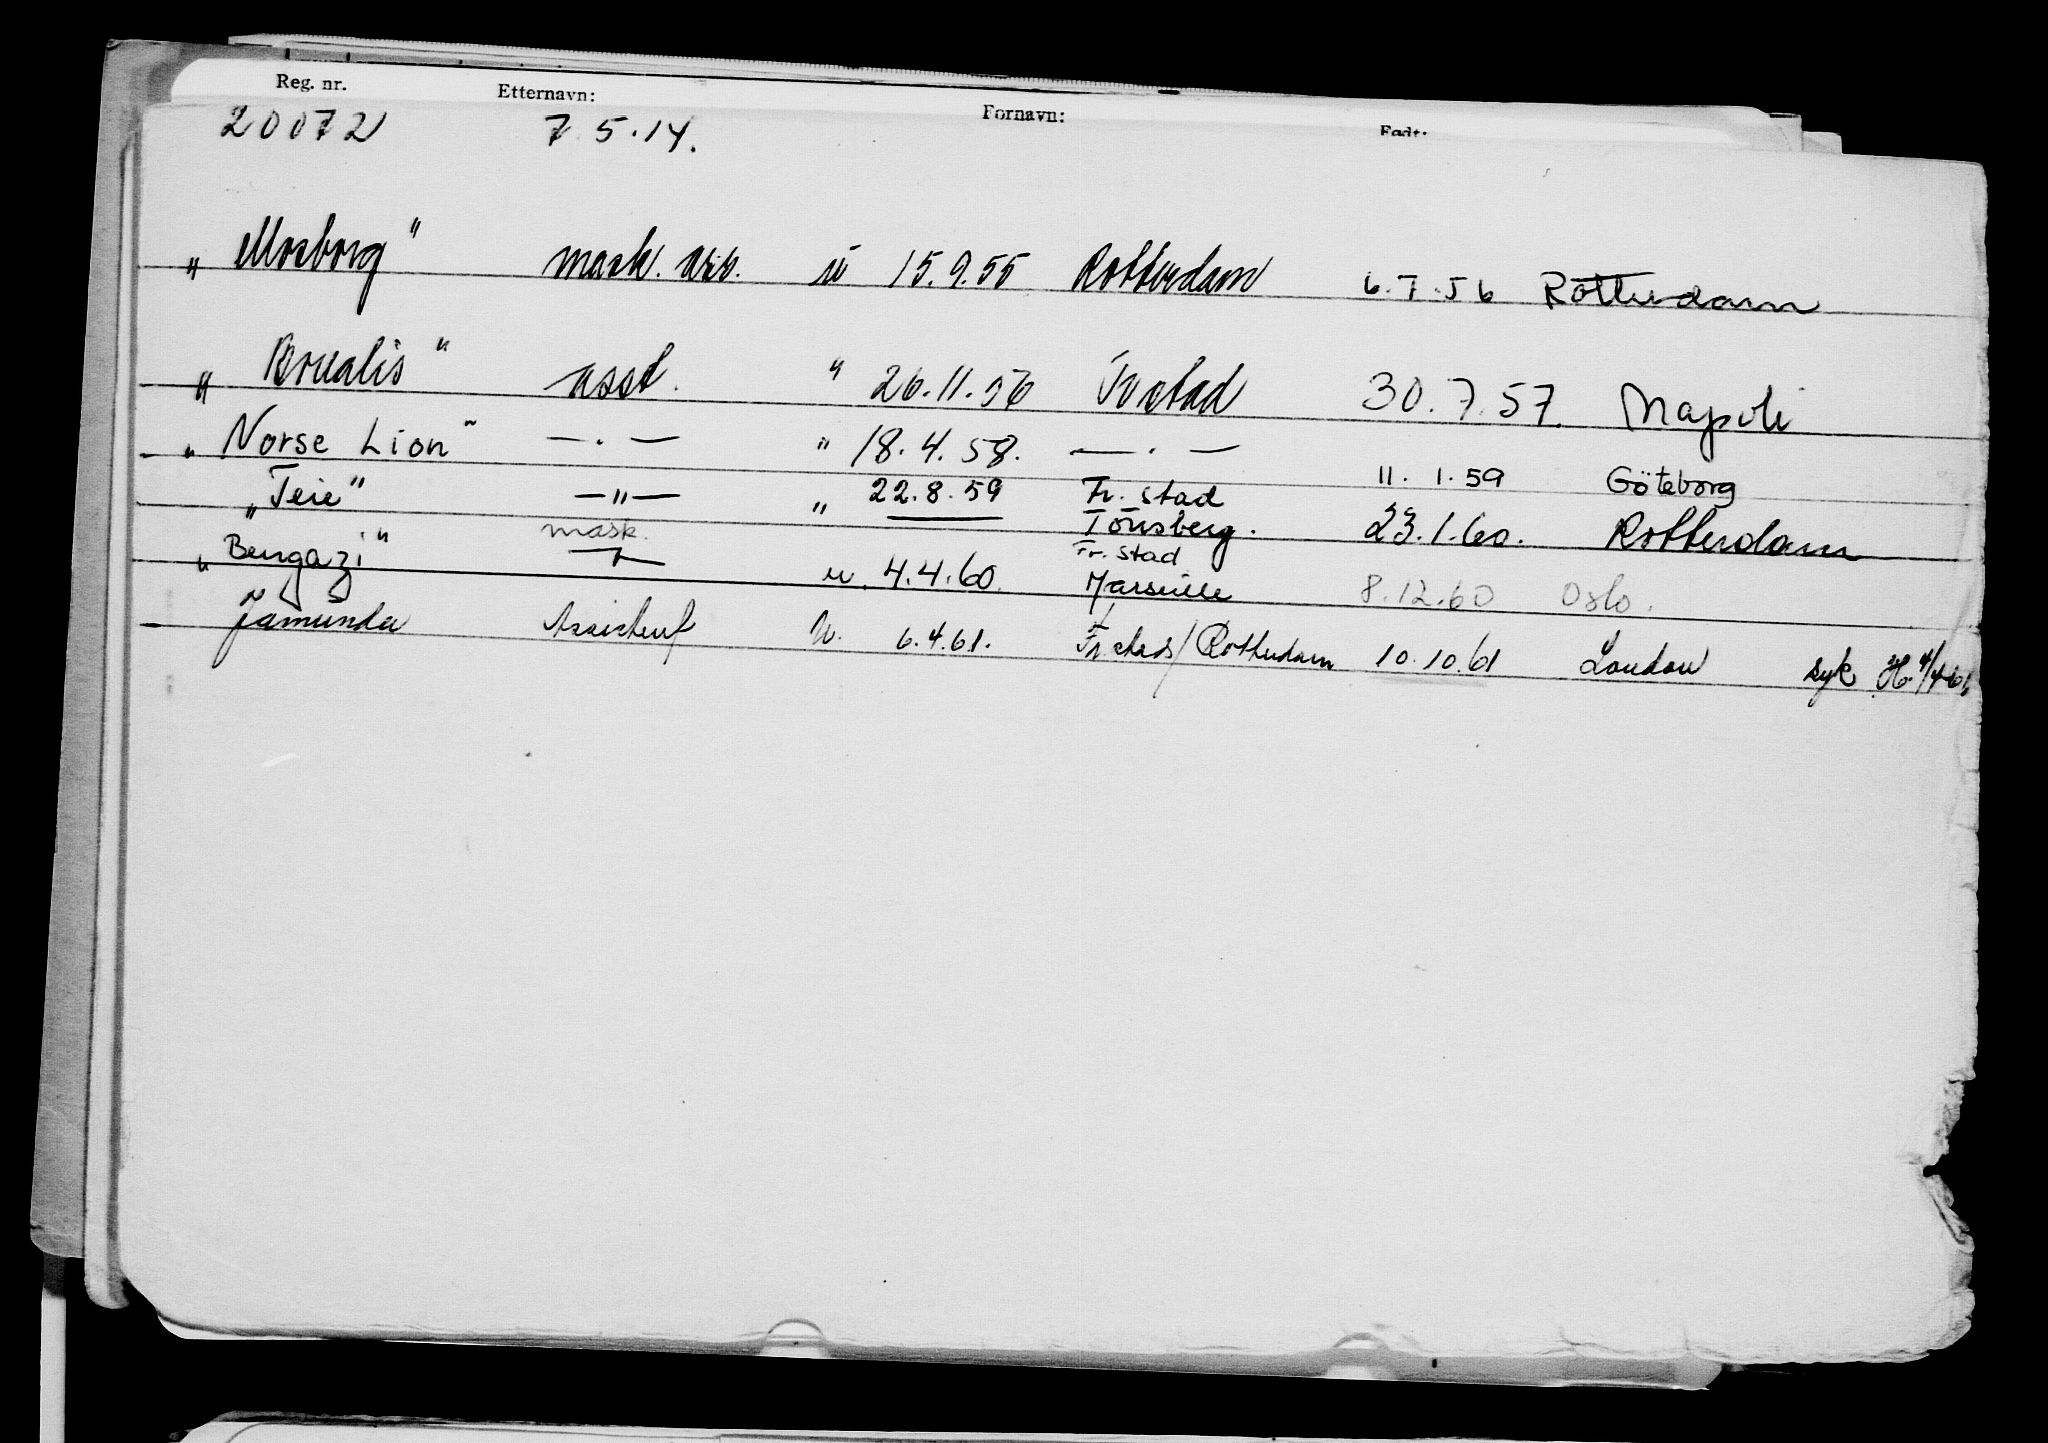 Reg. nr. Etternavn: Fornavn: Født:
20072 7.5.14.
"Mosborg" mask. ass. u 15.9.55 Rotterdam 6.7.56 Rotterdam
"Borealis" asst. " 26.11.56 Fr stad 30.7.57. Napoli
"Norse Lion" —.— " 18.4.58. —.— 11.1.59 Göteborg
"Teie" —"— " 22.8.59 Fr. stad Tönsberg. 23.1.60. Rotterdam
"Bengazi" mask. u. 4.4.60. Fr. stad Marseille 8.12.60 Oslo.
Jamunda Assistent u. 6.4.61. Fr stad/Rotterdam 10.10.61 London syk